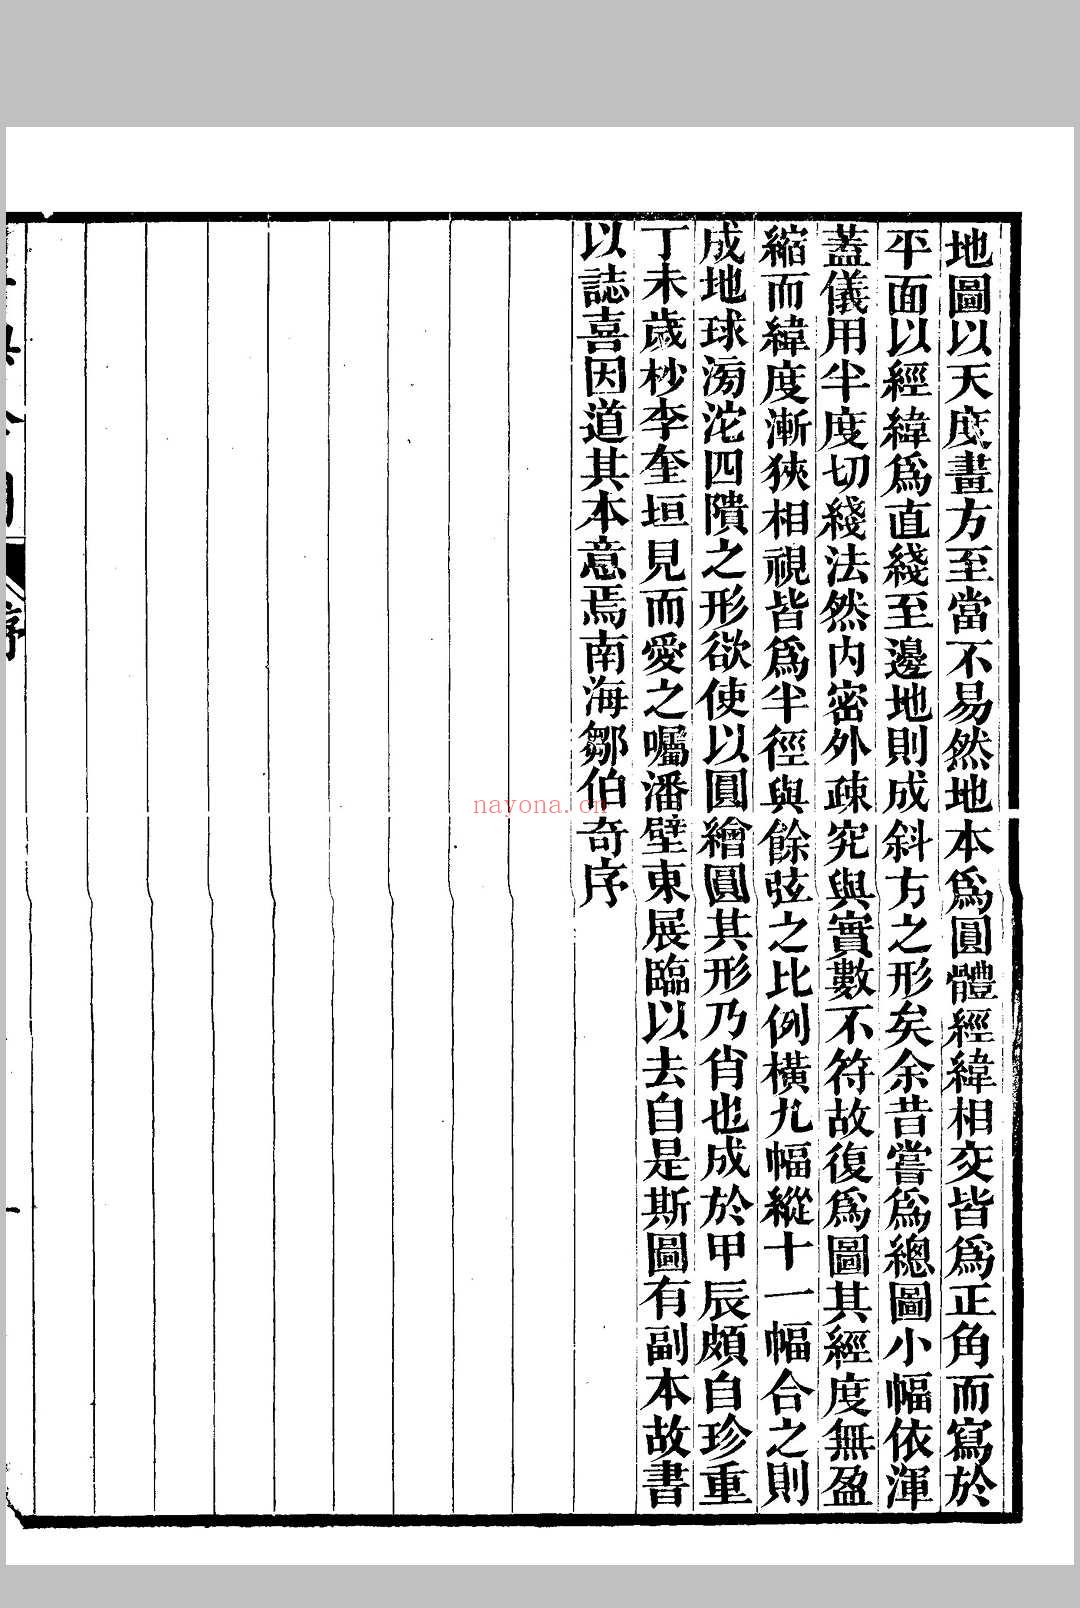 地圖以天度畫方至當不易然地本爲圓體經緯相交皆爲正角而寫於
平面以經緯爲直綫至邊地則成斜方之形矣余昔嘗爲總圖小幅依渾
蓋儀用半度切綫法然内密外疎究與實數不符故復爲圖其經度無盈
縮而緯度漸狹相視皆爲半徑與餘弦之比例橫九幅縱十一幅合之則
成地球滂沱四隤之形欲使以圓繪圓其形乃肖也成於甲辰頗自珍重
丁未歲杪李奎垣見而愛之囑潘壁東展臨以去自是斯圖有副本故書
以誌喜因道其本意焉南海鄒伯奇序
序
一
nayona.cn